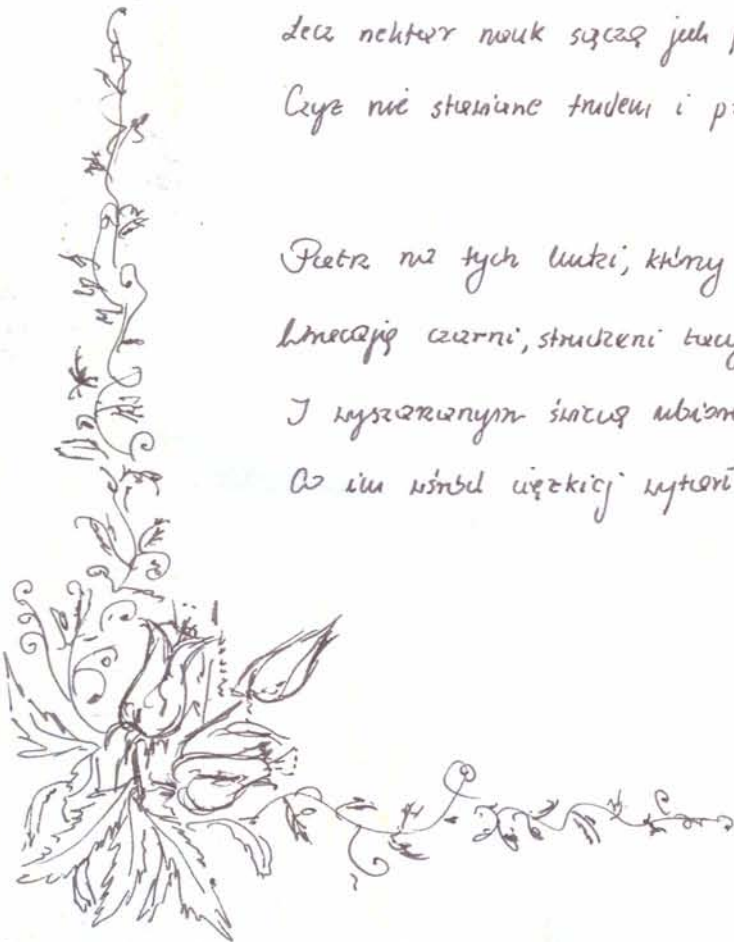 Lecz nektar nauk sączą jak p
Czyż nie stawiane trudem i p
Patrz na tych ludzi, którzy
Wracają czarni, strudzeni tacy
I wyszarzanym świecą ubior
Co im wśród ciężkiej wytarł